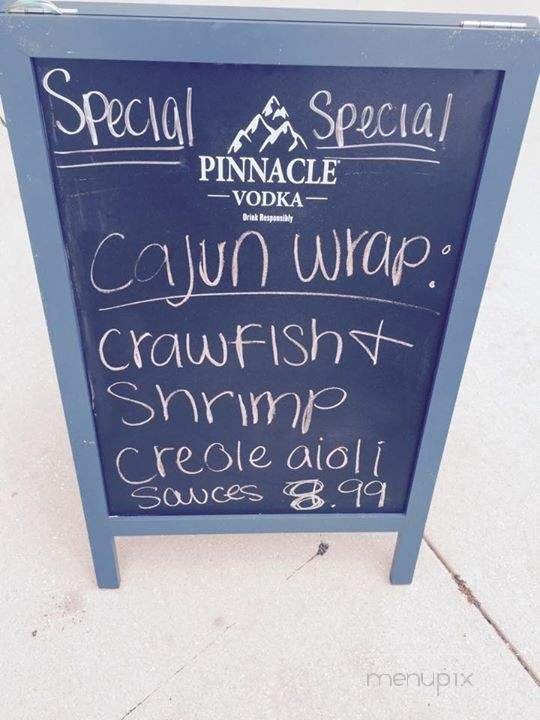 Special Special
PINNACLE
VODKA
Drink Responsibly
Cajun wrap:
crawfish +
Shrimp
creole aioli
sauces 8.99
menupix